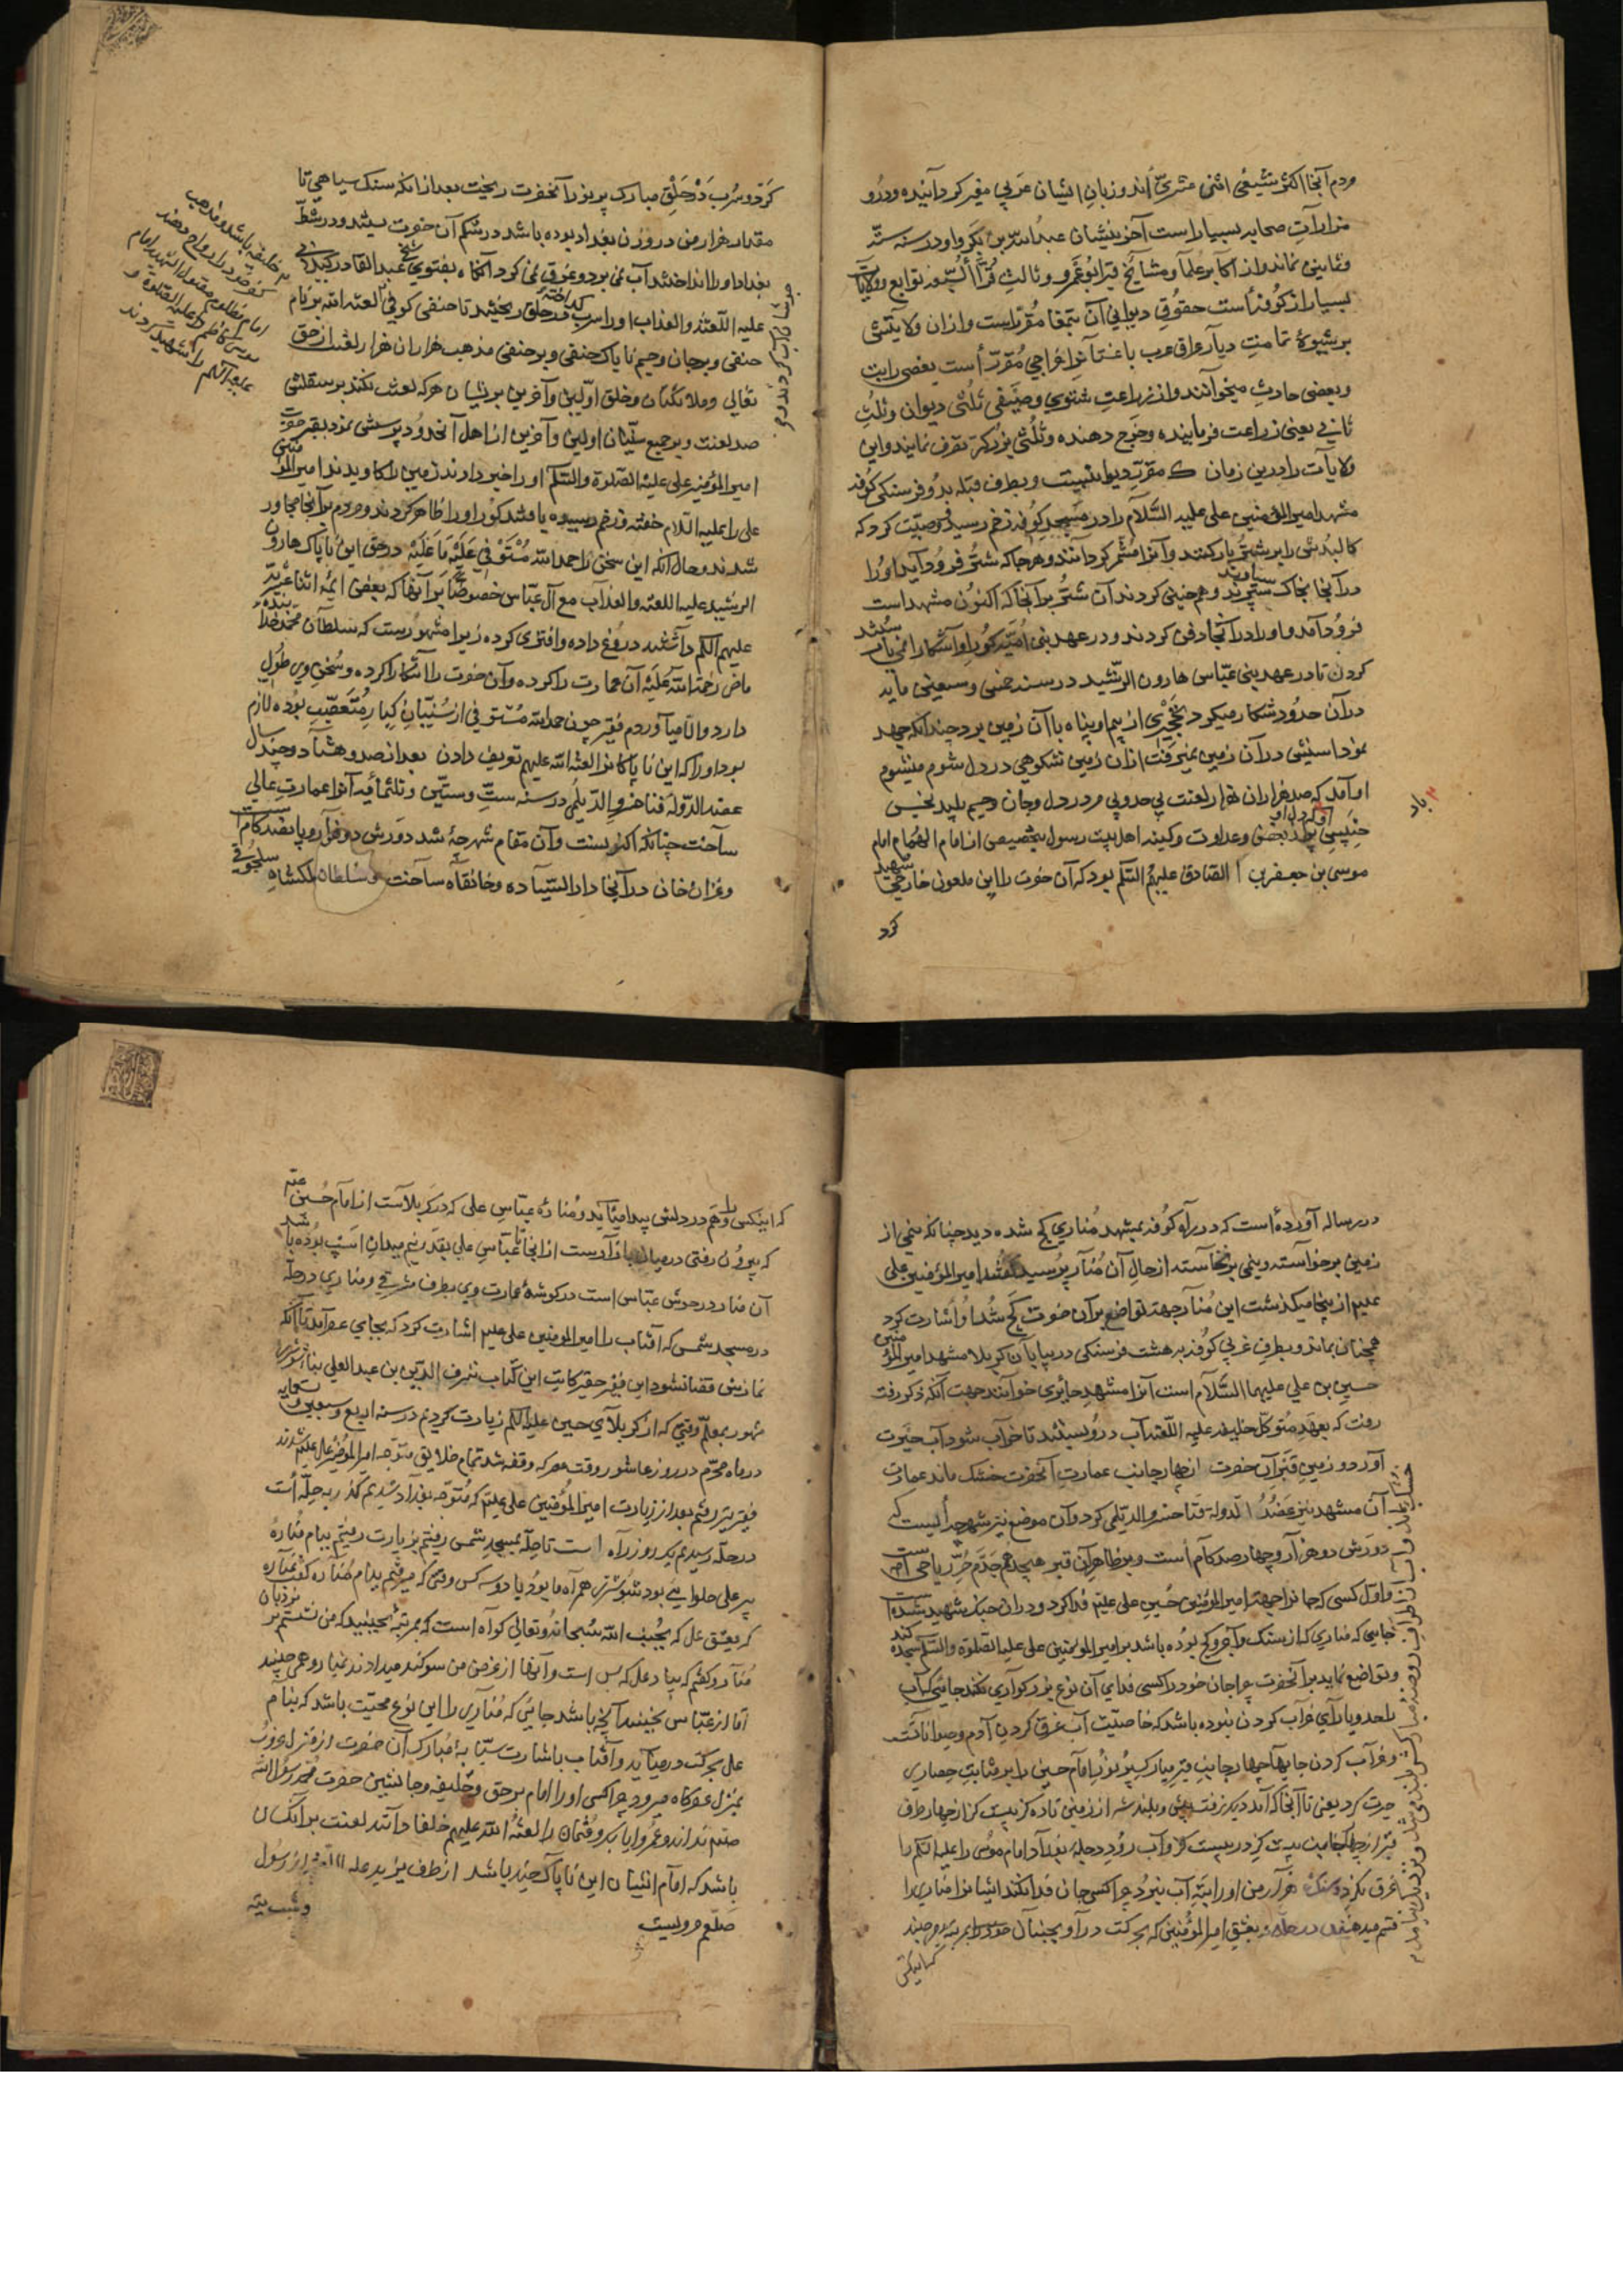 مردم آنجا اکثر شیعی اثنی عشری‌اند و زبان ایشان عربی مغیر کردانیده و درو
مزارات صحابه بسیار است آخرینشان عبدالله بن
و ثمانین نماند و از اکابر علما و مشایخ قبر ابو عمرو و ثالث قراء السبعه توابع و ولایات
بسیار از کوفه است حقوق دیوانی آن بتمغا مقرر است و از آن ولایتش
بر شیوهٔ تمامت دیار عراق عرب خراجی مقرر است بعضی رابت
و بعضی حادث میخوانند و از زراعت شتوی و صیفی ثلثی دیوان و ثلث
ثانی یعنی زراعت فرماینده و خرج دهنده و ثلثی بزرکر تصرف نمایند و این
ولایات را درین زمان مقرر دیوانیست و بطرف قبله بدو فرسنکی کوفه
مشهد امیرالمؤمنین علی علیه السلام را در مسجد کوفه زخم رسید وصیت کرد که
کالبدش را بر شتر بار کنند و آنرا کردانند و هر جا که شتر فرود آید او را
در آنجا بخاک سپرند و همچنین کردند آن شتر بر آنجا که اکنون مشهد است
فرود آمد و او را در آنجا دفن کردند و در عهد بنی امیه کور او آشکارا نمی
کردن تا در عهد بنی عباس هارون الرشید در سنه خمس و سبعین مایه
در آن حدود شکار میکرد نخچیری از بیم او پناه با آن زمین برد چندانکه جهد
نمود اسبش در آن زمین نمیرفت از آن زمین شکوهی در دل شوم میشوم
او آمد که صد هزاران هزار لعنت بی حد و بی مر در دل و جان و جسم پلید نجس
پلید بغض و عداوت و کینه اهل بیت رسول بتخصیص از امام الهمام امام
موسی بن جعفر الصادق علیهم السلم بود که آن حضرت را این ملعون خارجی شهید
کرد
کرد و سرب در حلق مبارک پرنور آنحضرت ریخت بعد از آنکه سنک سیاهی تا
مقدار هزار من در وزن بغداد بوده باشد در شکم آن حضرت بستند و در شط
بغداد او را انداختند آب نمی برد و غرق نمی کرد آنکاه بفتوی شیخ عبد القادر کیلانی
علیه اللعنه والعذاب او را سرب کداخته در حلق ریختند تا حنفی کوفی لعنه الله بر نام
حنفی و بر جان و جسم ناپاک حنفی و بر حنفی مذهب هزاران هزار لعنت از حق
تعالی و ملائکان و خلق اولین و آخرین بر ایشان هر که لعنت نکند بر سقلش
صد لعنت و بر جمیع سنیان اولین و آخرین از اهل آن حدود پرسش نمود بقبر حضرت
امیرالمؤمنین علی علیه الصلوة والسلم او را خبر دادند زمین را کاویدند امیرالمؤمنین
علی را علیه السلام خفته و زخم رسیده یافتند کور او را ظاهر کردند و مردم بر آنجا مجاور
شدند و حال آنکه این سخن را حمد الله مستوفی علیه ما علیه در حق این ناپاک هارون
الرشید علیه اللعنه والعذاب مع آل عباس خصوصا بر آنها که بعضی ایمه اثنا عشریه
علیهم السلم داشتند دروغ داده و افتری کرده زیرا مشهورست که سلطان محمد خدابنده
ماضی رحمة الله علیه آن عمارت را کرده و آن حضرت را آشکارا کرده و سخن وی طول
دارد و الا میآوردم فقیر چون حمد الله مستوفی از سنیان کبار متعصب بوده لازم
بود او را که این ناپاکانرا لعنه الله علیهم تعریف دادن بعد از صد و هشتاد و چند سال
عضد الدوله فناخسرو الدیلمی در سنه ست و ستین و ثلثمأیه آنرا عمارت عالی
ساخت چنانکه اکنون هست و آن مقام شهرچهٔ شد دورش دو هزار و پانصد کام است
و غزان خان در آنجا دار السیاده و خانقاه ساخت و سلطان ملکشاه سلجوقی
خلیفه باشد و مذهب
کفر خود را رواج دهند
امام مظلوم مقتول الشهید امام
موسی کاظم را علیه الصلوة و
علیه السلم را شهید کردند
در رساله آورده است که در راه کوفه بمشهد مناری کج شده دید چنانکه نیمی از
زمین برخواسته و نیمی برنخاسته از حال آن منار پرسید گفتند امیرالمؤمنین علی
علیم از اینجا میکذشت این منار جهت تواضع بر آن حضرت کج شد او اشارت کرد
همچنان بماند و بطرف غربی کوفه بر هشت فرسنکی در بیابان کربلا مشهد امیرالمؤمنین
حسین بن علی علیهما السلام است آنرا مشهد حایری خوانند جهت آنکه ذکر رفت
رفت که بعهد متوکل خلیفه علیه اللعنه آب درو بستند تا خراب شود آب حیرت
آورد و زمین قبر آن حضرت از چهار جانب عمارت آنحضرت خشک ماند عمارت
آن مشهد نیز عضد الدوله فناخسرو الدیلمی کرد و آن موضع نیز شهرچه ایست که
دورش دو هزار و چهار صد کام است و بر ظاهر آن قبر هیجدهم جدم حر ریاحی است
و اول کسی که جانرا جهت امیرالمؤمنین حسین علی علیم فدا کرد و در آن جنک شهید شد
جایی که مناری که از سنک و آجر و کج بوده باشد بر امیرالمؤمنین علی علیه الصلوة والسلم سجده کند
و تواضع نماید بر آنحضرت چرا جان خود را کسی فدای آن نوع بزرکواری نکند جایی که آب
را حد و یارای خراب کردن نبوده باشد که خاصیت آب غرق کردن آدم و حیوانات
و خراب کردن جایها چهار جانب قبر مبارک پرنور امام حسین را بر مثابت حصاری
حیرت کرد یعنی تا آنجا که آمد دیکر نرفت پیش و بلند شد از زمین تا ده کز بیست کز از چهار طرف
غرق نکرد و سنک هزار من او را بته آب نبرد چرا کسی جان فدا نکند ایشانرا مناری را
قسم میدهند در حله بعشق امیرالمؤمنین که بحرکت درآ و بجنبان خود را بمرتبه می جنبد
که اینکس را وهم در دلش پیدا میآید و مناره عباس علی که در کربلاست از امام حسین
که بیرون رفتی در میان بازارست از آنجا تا عباس علی بقدر نیم میدان اسب بوده باشد
آن منار در حوش عباس است در کوشهٔ عمارت وی بطرف مشرقی و مناری در حله
در مسجد شمس که آفتاب را امیرالمؤمنین علی علیم اشارت کرد که بجای عصر آمد تا آنکه
نمازش قضا نشود این فقیر حقیر کاتب این کتاب شرف الدین بن عبد العلی بنا شوشتری
مشهور بمعلم وقتی که از کربلای حسین علیه السلم زیارت کردیم در سنه اربع و سبعین و تسعمایه
در ماه محرم در روز عاشور وقت معرکه وقفه شد تمام خلایق متوجه امیرالمؤمنین علی علیم شدند
فقیر نیز رفتم بعد از زیارت امیرالمؤمنین علی علیم که متوجه بغداد شدیم کذر به حله است
در حله رسیدیم یک روز راه است تا حله بمسجد شمس رفتیم بزیارت رفتیم ببام مناره
پیر علی حلوایی بود شوشتری همراه ما بود با دو سه کس وقتی که میرفتیم ببام مناره کفت بمناره
که بعشق علی که بجنب الله سبحانه و تعالی کواه است که بمرتبهٔ بجنبید که من نشستم بر نردبان
منار و کفتم که بیاد علی که بس است و آنها از غرض من سوکند میدادند منار و همی جنبید
اما از عباس بجنبید اما کج باشد جایی که مناری را این نوع محبت باشد که بنام
علی بحرکت درمیآید و آفتاب باشارت سبابهٔ مبارک آن حضرت از منزل غروب
بمنزل عصرکاه میرود چرا کسی او را امام برحق و خلیفه و جانشین حضرت محمد رسول الله
صلعم نداند و عمر و ابابکر و عثمان را لعنه الله علیهم خلفا دانند لعنت بر آنکسان
باشد که امام ایشان این ناپاک چیز باشد از طرف یزید علیه اللعنه از رسول
صلعم مرویست